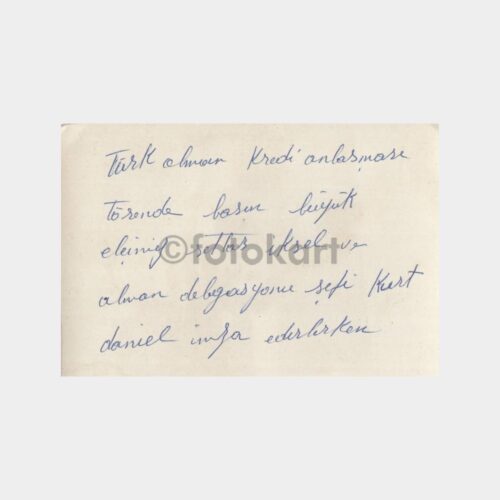 Türk alman Kredi anlaşması
törende başın büyük
elçimiz settar iksel ve
©fotokart
alman delegasyonu şefi Kurt
daniel imza ederlerken